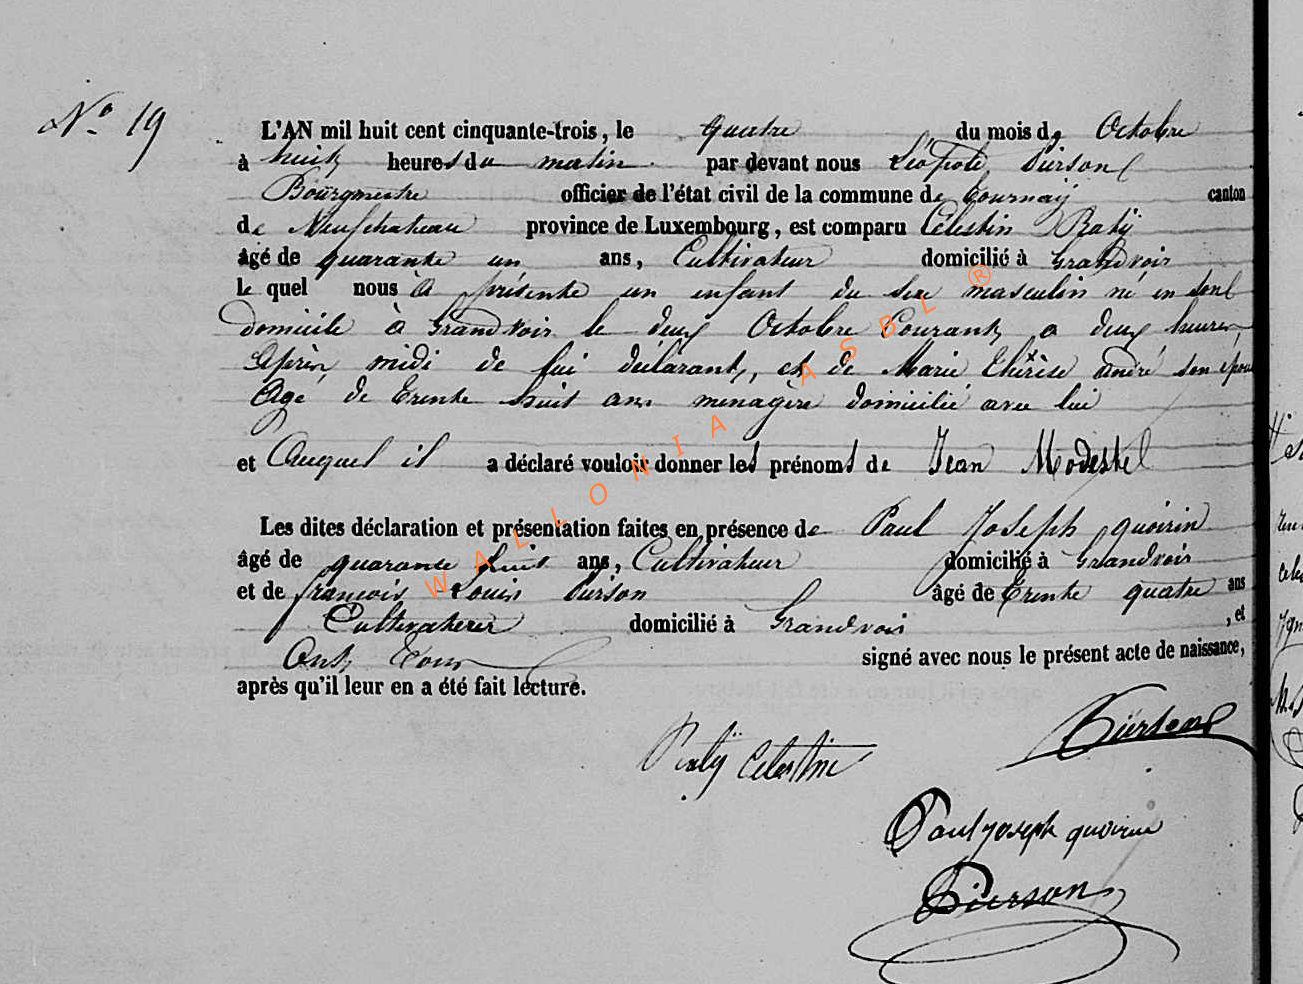 N° 19
L'AN mil huit cent cinquante-trois, le quatre du mois de Octobre
à huit heures du matin par devant nous Léopold Pierson
Bourgmestre officier de l'état civil de la commune de Tournay canton
de Neufchateau province de Luxembourg, est comparu Célestin Raty
âgé de quarante un ans, Cultivateur domicilié à Grandvoir
le quel nous a présenté un enfant du sexe masculin né en son
domicile à Grandvoir le deux Octobre Courant, a deux heures
après midi de lui déclarant, et de Marie Thérèse André son épouse
Agé de trente huit ans menagère domicilié avec lui
et Auquel il a déclaré vouloir donner les prénoms de Jean Modeste
Les dites déclaration et présentation faites en présence de Paul Joseph quoirin
âgé de quarante huit ans, Cultivateur domicilié à Grandvoir
et de françois Louis Pierson âgé de trente quatre ans
Cultivateur domicilié à Grandvoir, et
Ont tous signé avec nous le présent acte de naissance,
après qu'il leur en a été fait lecture.
Pierson
Raty Celestin
Paul joseph quoirin
Pierson
WALLONIA ASBL ®